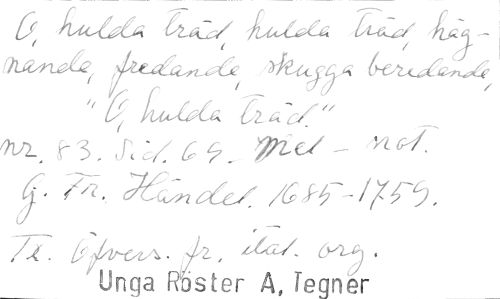 O, hulda träd, hulda träd, häg-
nande, fredande, skugga beredande,
"O, hulda träd."
nr. 83. Sid. 69. Mel - not.
G. Fr. Händel. 1685-1759.
Tx. Öfvers. fr. ital. org.
Unga Röster A, Tegner